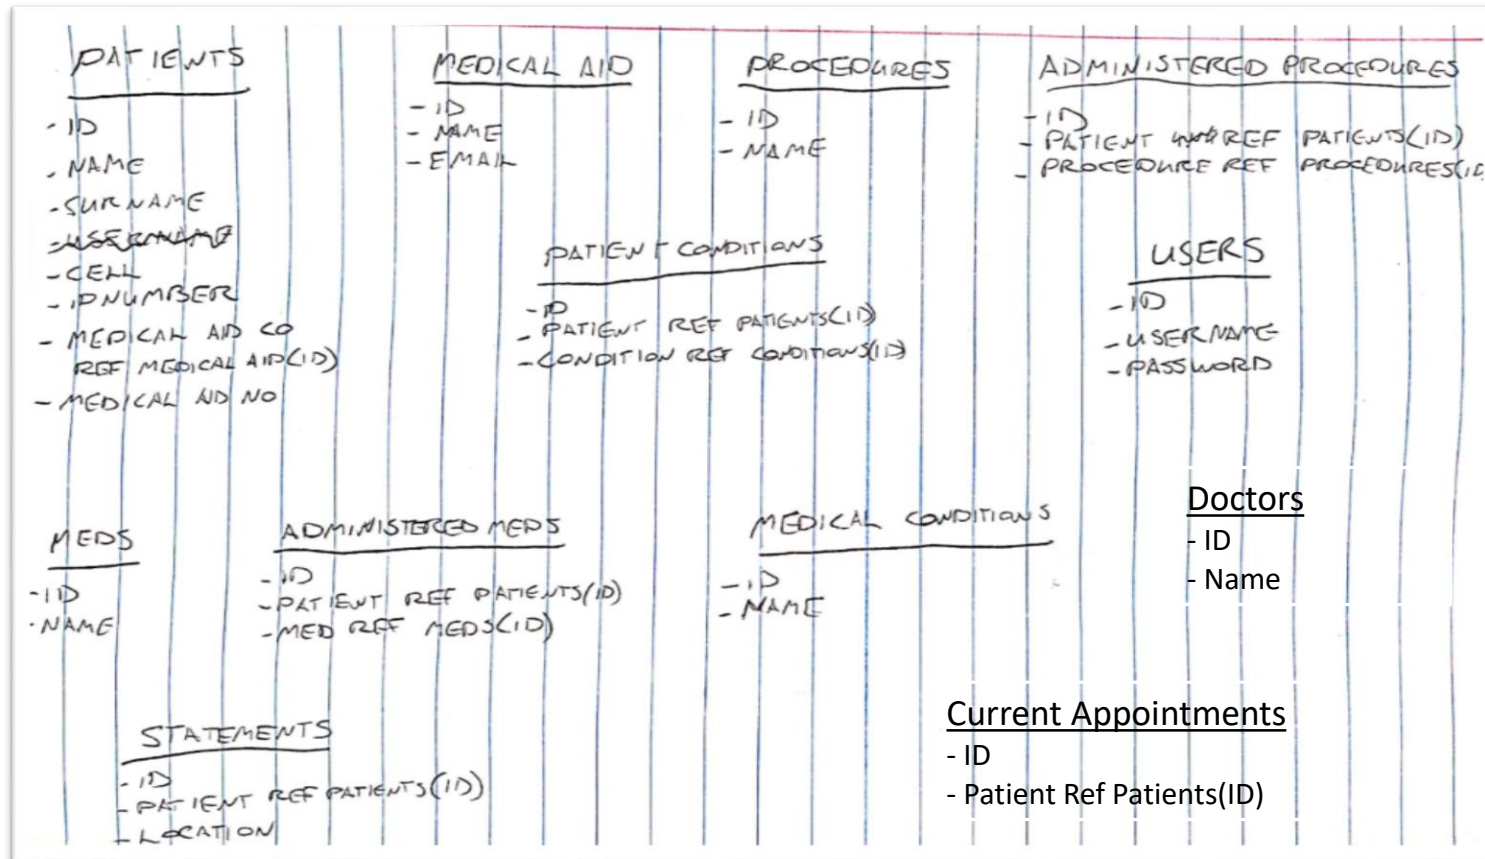 PATIENTS
- ID
- NAME
- SURNAME
- USERNAME
- CELL
- IDNUMBER
- MEDICAL AID CO
REF MEDICAL AID(ID)
- MEDICAL AID NO
MEDICAL AID
- ID
- NAME
- EMAIL
PROCEDURES
- ID
- NAME
ADMINISTERED PROCEDURES
- ID
- PATIENT REF PATIENTS(ID)
- PROCEDURE REF PROCEDURES(ID
PATIENT CONDITIONS
- ID
- PATIENT REF PATIENTS(ID)
- CONDITION REF CONDITIONS(ID)
USERS
- ID
- USERNAME
- PASSWORD
MEDS
- ID
- NAME
ADMINISTERED MEDS
- ID
- PATIENT REF PATIENTS(ID)
- MED REF MEDS(ID)
MEDICAL CONDITIONS
- ID
- NAME
Doctors
- ID
- Name
STATEMENTS
- ID
- PATIENT REF PATIENTS(ID)
- LOCATION
Current Appointments
- ID
- Patient Ref Patients(ID)